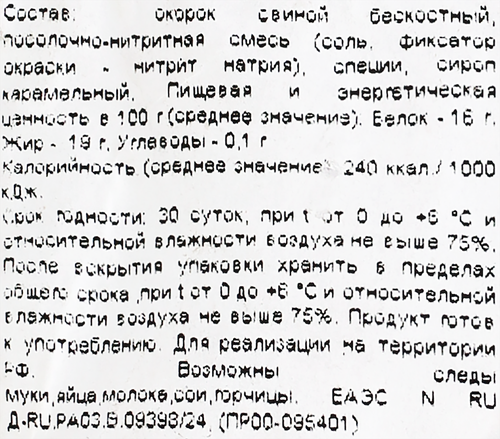 Состав: окорок свиной бескостный,
посолочно-нитритная смесь (соль, фиксатор
окраски - нитрит натрия), специи, сироп
карамельный. Пищевая и энергетическая
ценность в 100 г (среднее значение): Белок - 16 г,
Жир - 19 г, Углеводы - 0,1 г
Калорийность (среднее значение): 240 ккал / 1000
кДж.
Срок годности: 30 суток, при t от 0 до +6 °С и
относительной влажности воздуха не выше 75%.
После вскрытия упаковки хранить в пределах
общего срока ,при t от 0 до +6 °С и относительной
влажности воздуха не выше 75%. Продукт готов
к употреблению. Для реализации на территории
РФ. Возможны следы
муки,яйца,молока,сои,горчицы. ЕАЭС N RU
Д-RU.РА03.В.09398/24, (ПР00-095401)